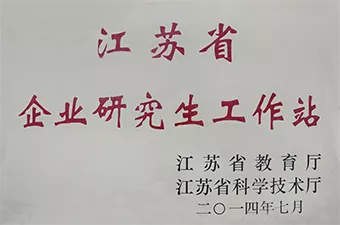 江苏省
企业研究生工作站
江苏省教育厅
江苏省科学技术厅
二〇一四年七月